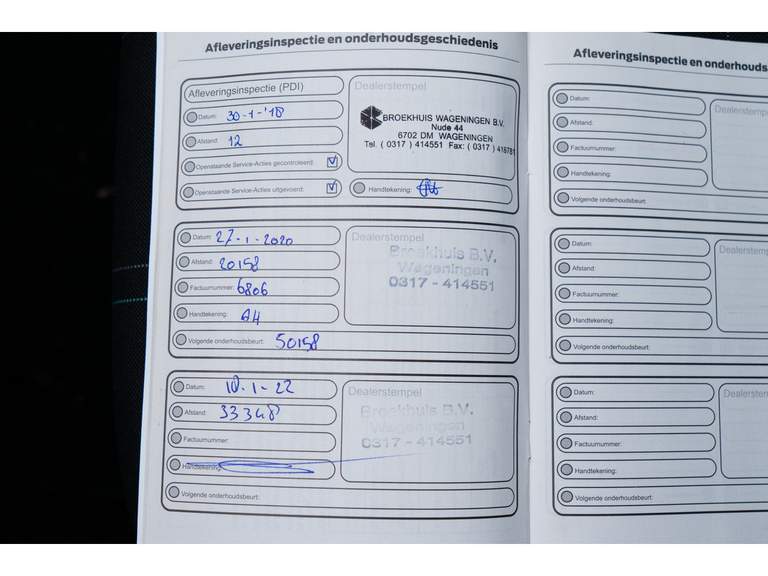 Afleveringsinspectie en onderhoudsgeschiedenis
Afleveringsinspectie (PDI)
Datum: 30-1-'18
Afstand: 12
Openstaande Service-Acties gecontroleerd:
Openstaande Service-Acties uitgevoerd:
Dealerstempel
BROEKHUIS WAGENINGEN B.V.
Nude 44
6702 DM WAGENINGEN
Tel. ( 0317 ) 414551 Fax: ( 0317 )
Handtekening:
Datum: 27-1-2020
Afstand: 20158
Factuurnummer: 6806
Handtekening:
Volgende onderhoudsbeurt: 50158
Dealerstempel
Broekhuis B.V.
Wageningen
0317 - 414551
Datum: 10-1-22
Afstand: 33348
Factuurnummer:
Handtekening:
Volgende onderhoudsbeurt:
Dealerstempel
Broekhuis B.V.
Wageningen
0317 - 414551
Afleveringsinspectie en onderhouds
Datum:
Afstand:
Factuurnummer:
Handtekening:
Volgende onderhoudsbeurt
Dealerstemp
Datum:
Afstand:
Factuurnummer:
Handtekening:
Volgende onderhoudsbeurt:
Dealerstemp
Datum:
Afstand:
Factuurnummer:
Handtekening:
Volgende onderhoudsbeurt:
Dealerstem